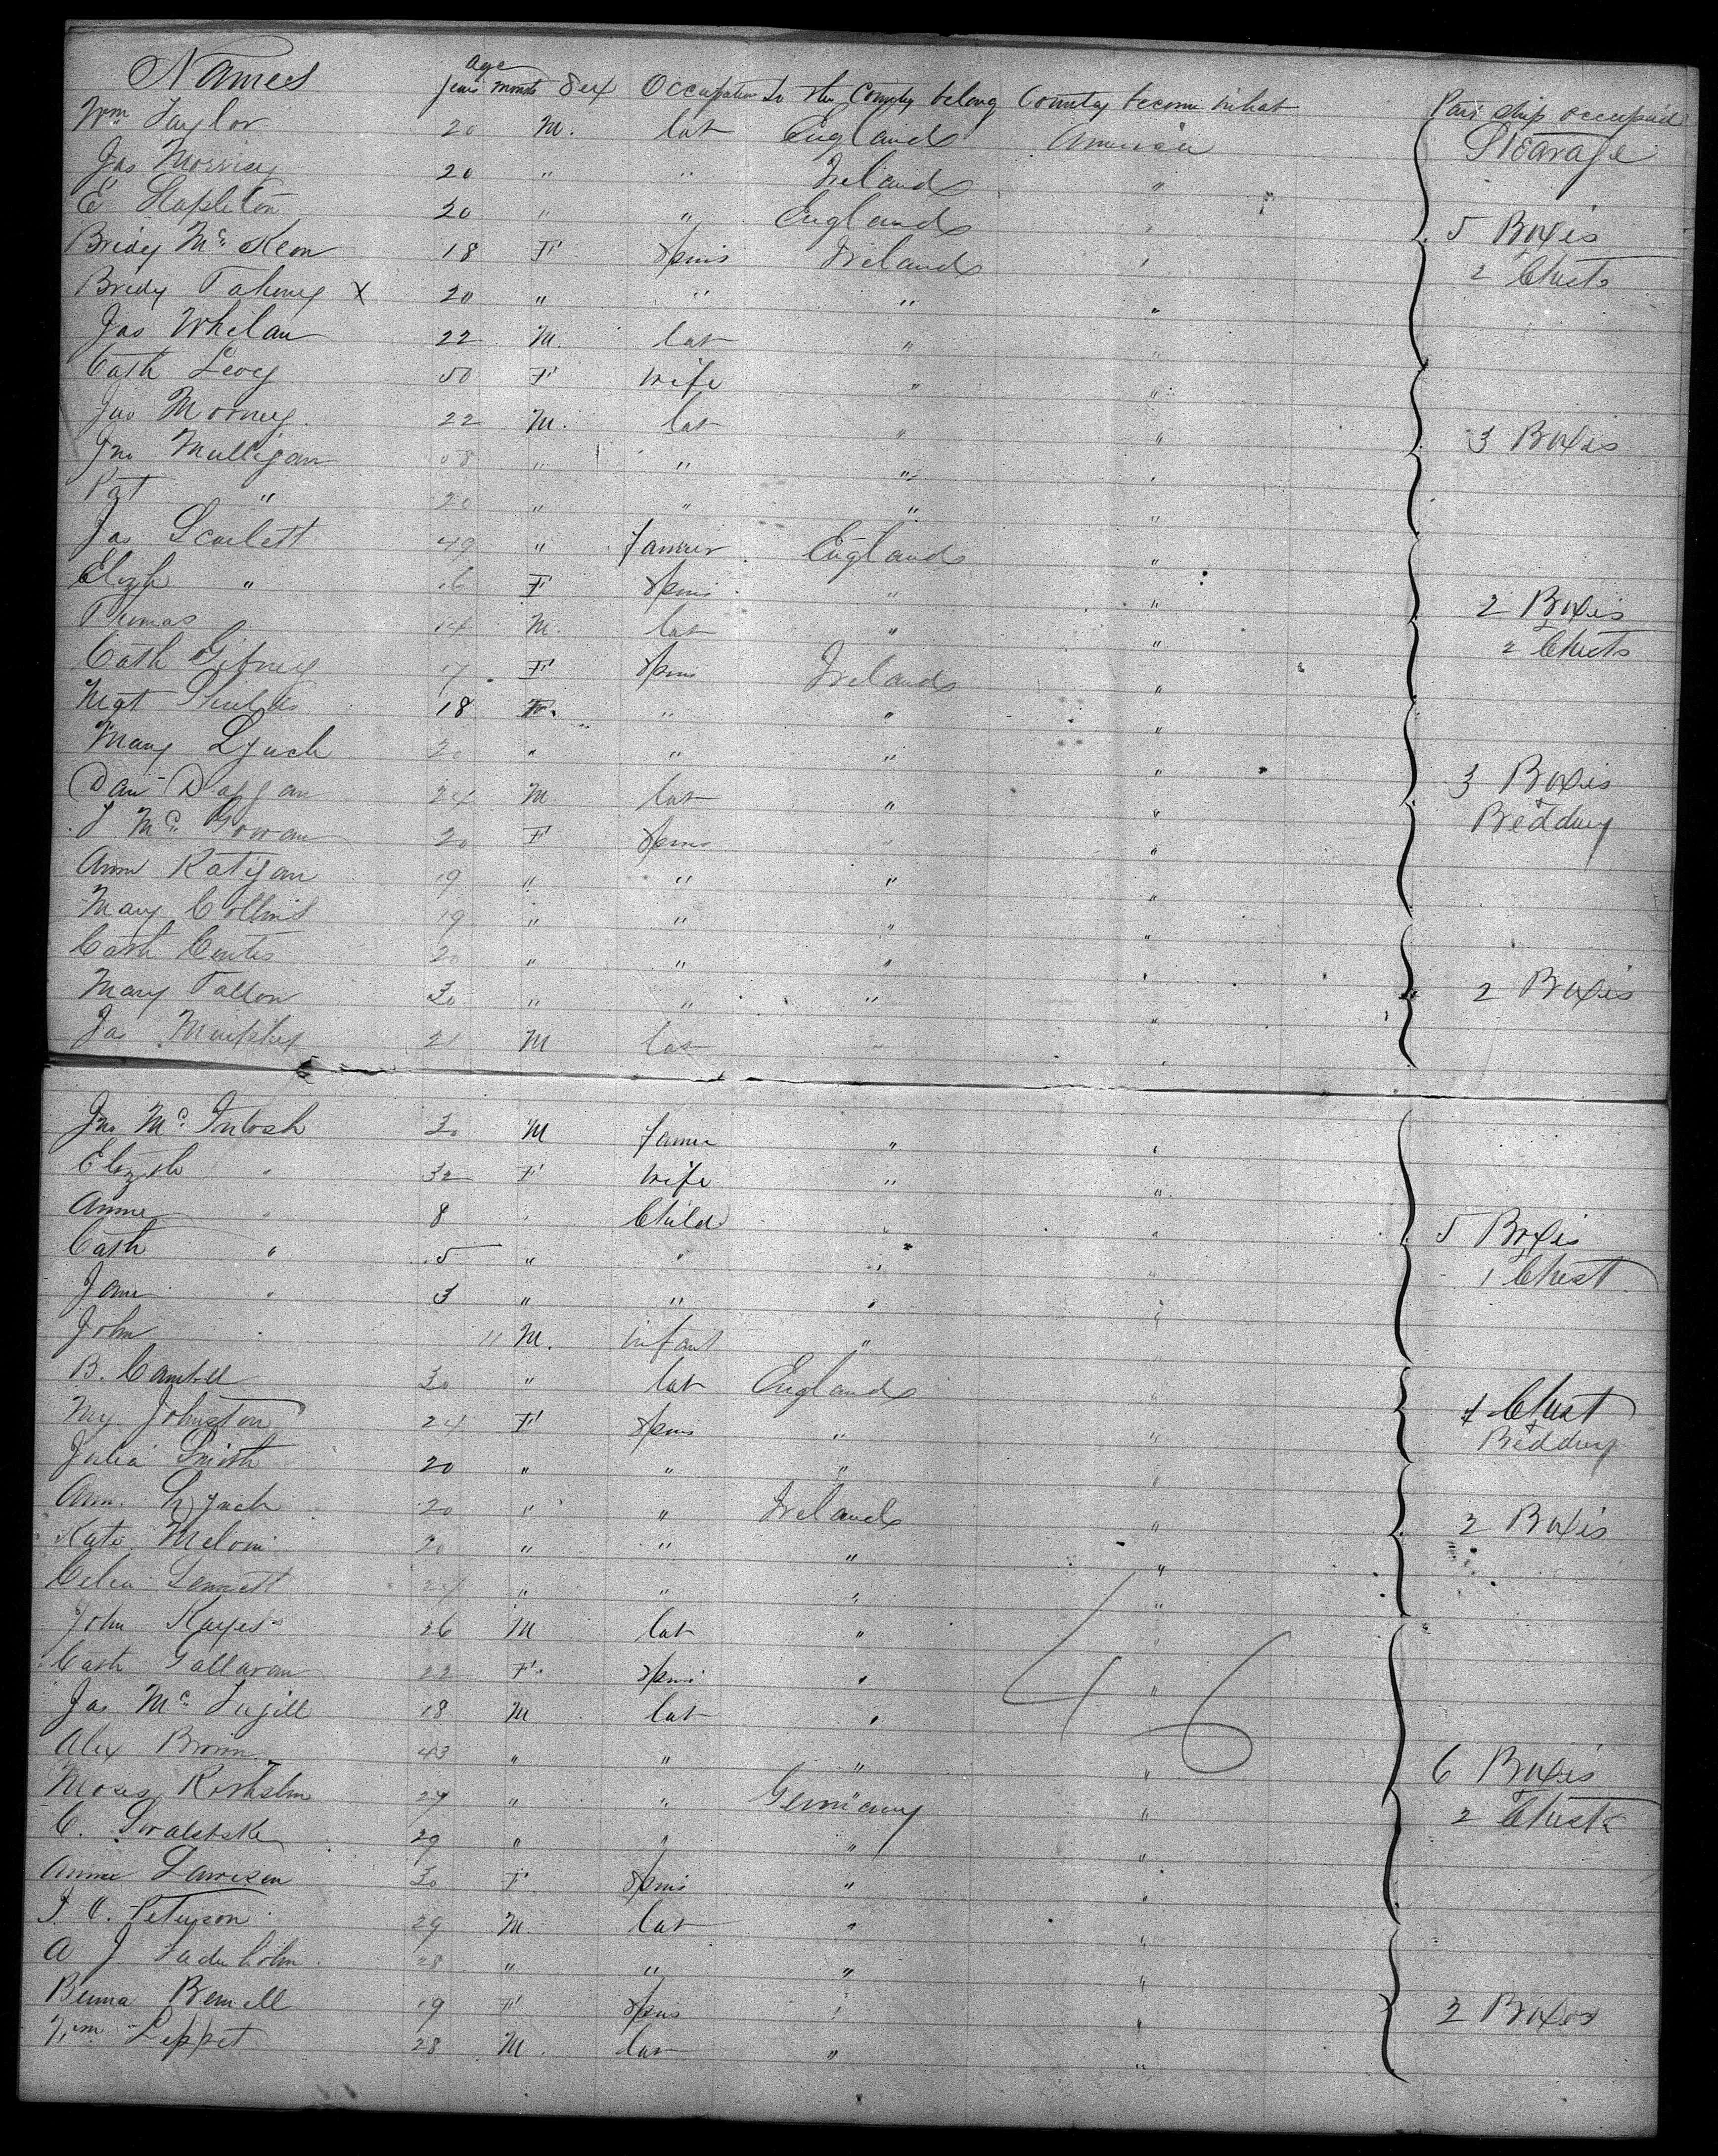 Names Age Years Months Sex Occupation To the County belong Country become inhat Part ship occupied
Wm Taylor 20 M. lab England America Stearage
Jas Morrisey 20 " " Ireland "
E Stapleton 20 " " England " 5 Boxes
Bridy Mc Keon 18 F Spins Ireland " 2 Chests
Bridy Taheny X 20 " " " "
Jas Whelan 22 M. lab " "
Cath Leoy 50 F Wife " "
Jas Morney 22 M. lab " " 3 Boxes
Jno Mulligan " " " "
Pat " 20 " " " "
Jas Scarlett 49 " Farmer England "
Elizh " 16 F Spins " " 2 Boxes
Thomas 14 M. lab " " 2 Chests
Cath Gibney 17 F Spins Ireland "
Mgt Shields 18 F. " " "
Mary Lynch 20 " " " " 3 Boxes
Dan Doggan 24 M lab " " Bedding
J Mc Gowan 20 F Spins " "
Ann Ratigan 19 " " " "
Mary Collins 19 " " " "
Cath 20 " " " "
Mary Fallon 30 " " " " 2 Boxes
Jas Murphy 21 M lab " "
Jno Mc Intosh 30 M Farmer " "
Elizth " 32 F Wife " "
Annie " 8 " Child " "
Cath " 5 " " " " 5 Boxes
Jane " 3 " " " " 1 Chest
John " 11 M. infant " "
B. Cambell 30 " lab England "
My Johnston 24 F Spins " " 1 Chest
Julia Smith 20 " " " " Bedding
Ann. Lynch 20 " " Ireland "
Kate Melvin 20 " " " " 2 Boxes
Celia Sennett 24 " " " "
John Kayes 26 M lab " "
Cath Gallavan 22 F. Spins " "
46
Jas Mc 18 M lab " "
Alex Brown 43 " " " " 6 Boxes
Moses 27 " " Germany " 2 Chests
C. 29 " " " "
Anna Lawesen 30 F Spins " "
J. C. Peterson 29 M. lab " "
A J 28 " " " "
Benna Bernell 19 F Spins " " 2 Boxes
Wm Leppet 28 M. lab " "